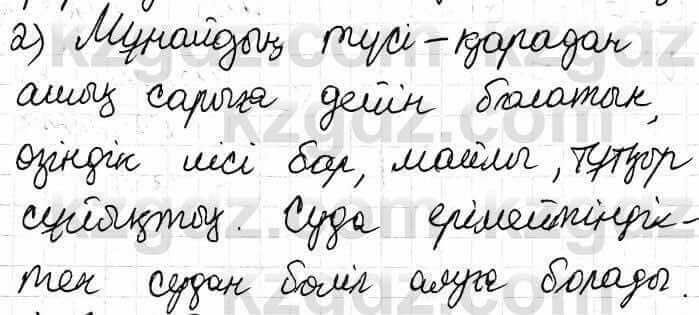 2) Мұнайдың түсі – қарадан
ашық сарыға дейін болатын,
өзіндік иісі бар, майлы, тұтқыр
сұйықтық. Суда ерімейтіндік-
тен судан бөліп алуға болады.
kzgdz.com kzgdz.com